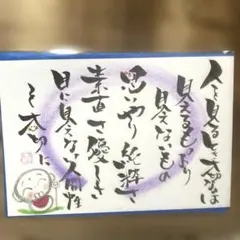 人を見るとき大切なのは
見えるものより
見えないもの
思いやり 純粋さ
素直さ優しさ
目に見えない人間性
こそ大切に